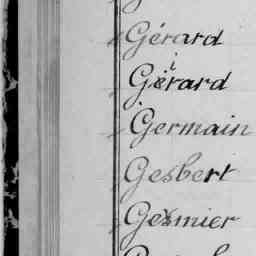 Gérard
Girard
Germain
Gesbert
Gesmier